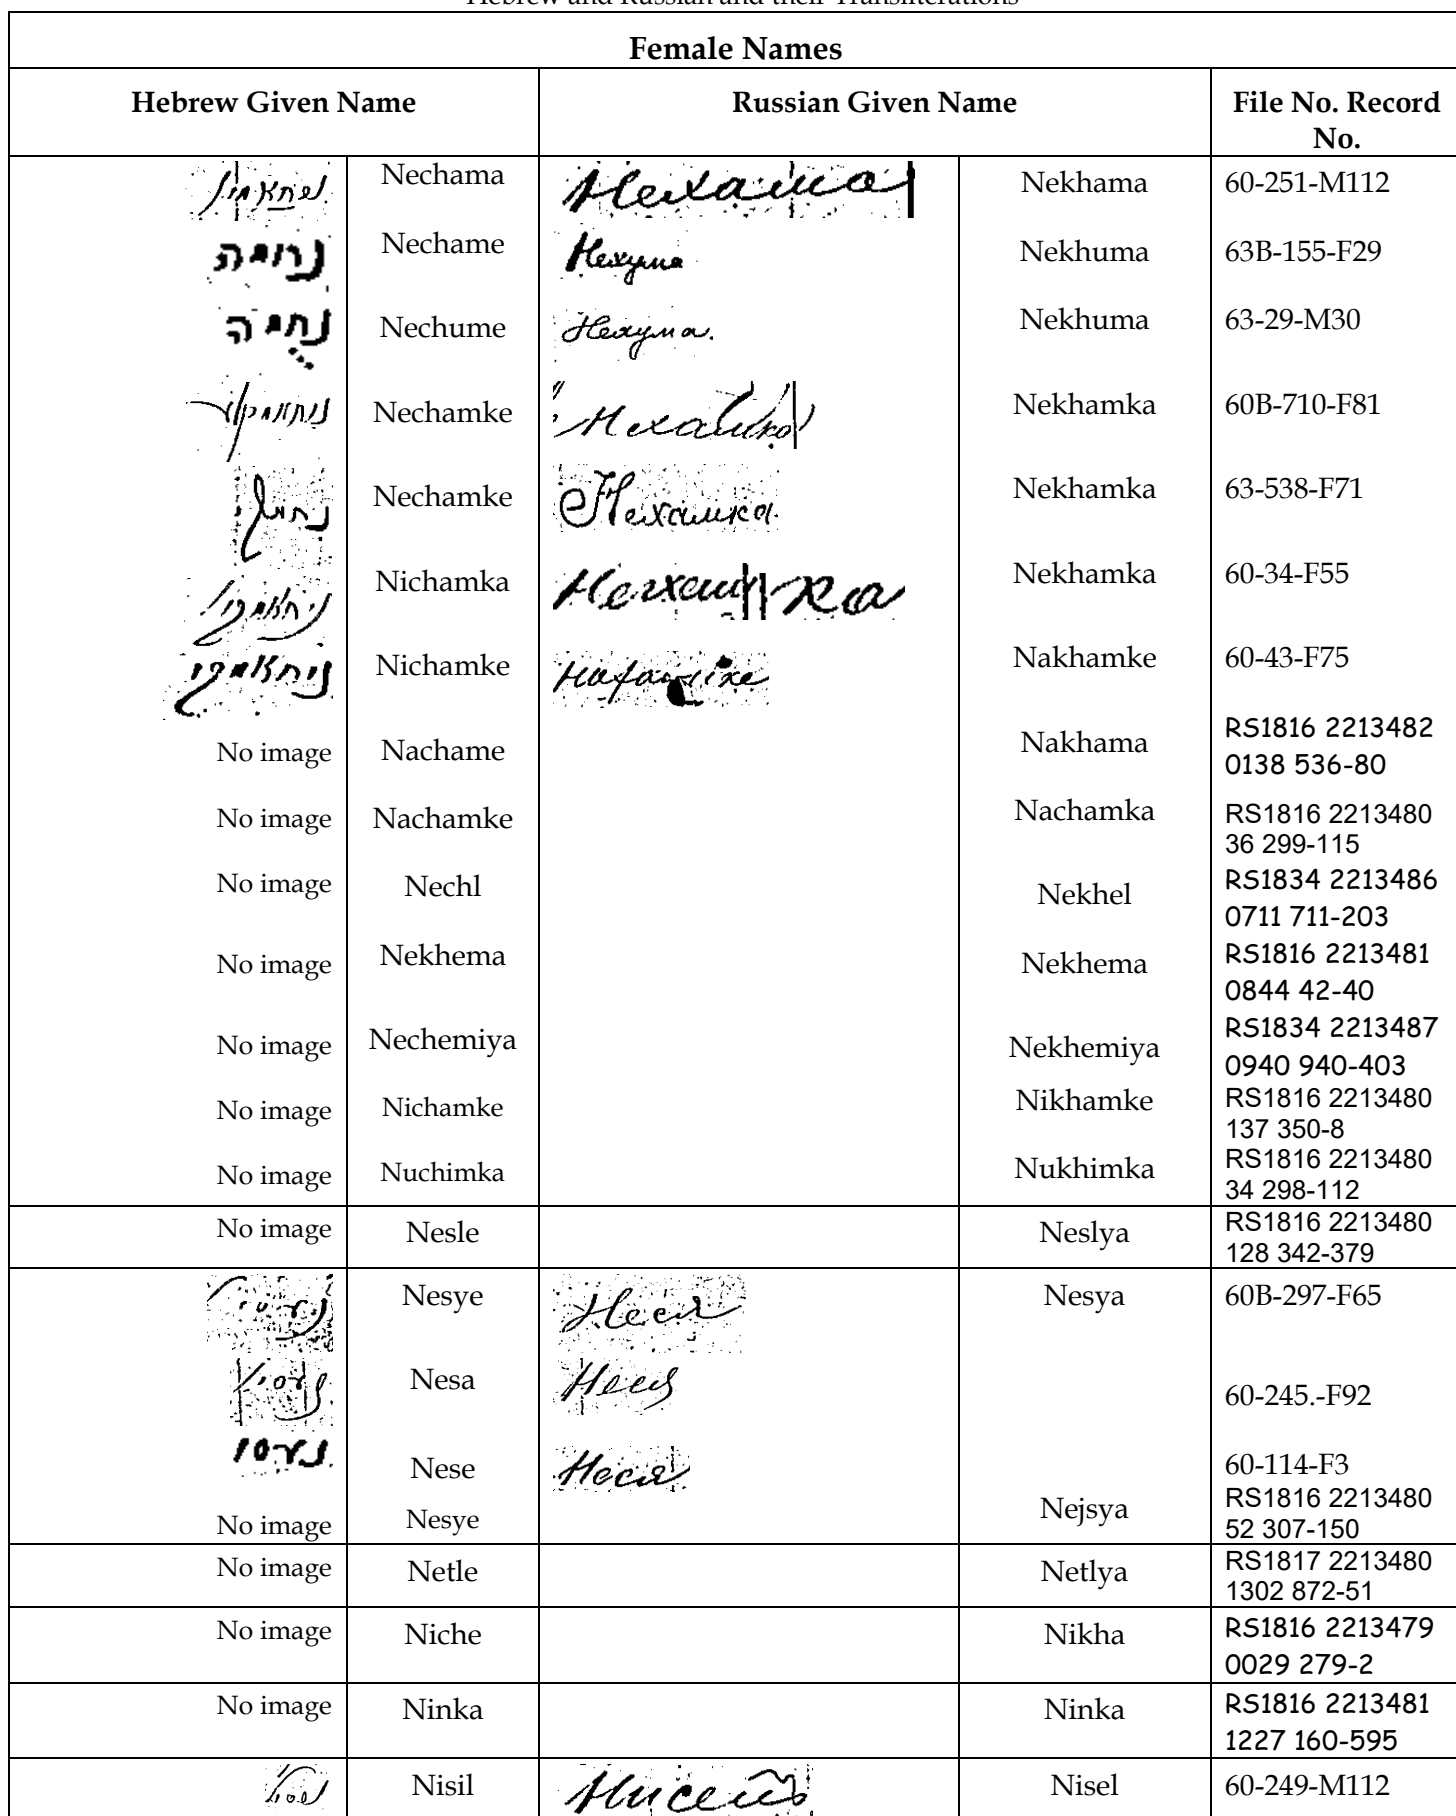 Hebrew and Russian and their Transliterations
Female Names
Hebrew Given Name Russian Given Name File No. Record No.
Nechama Нехама Nekhama 60-251-M112
נחמה Nechame Нехума Nekhuma 63B-155-F29
נחֻמה Nechume Нехума. Nekhuma 63-29-M30
Nechamke Нехамка Nekhamka 60B-710-F81
Nechamke Нехамка Nekhamka 63-538-F71
Nichamka Nekhamka 60-34-F55
ניחאמקי Nichamke Nakhamke 60-43-F75
No image Nachame Nakhama RS1816 2213482 0138 536-80
No image Nachamke Nachamka RS1816 2213480 36 299-115
No image Nechl Nekhel RS1834 2213486 0711 711-203
No image Nekhema Nekhema RS1816 2213481 0844 42-40
No image Nechemiya Nekhemiya RS1834 2213487 0940 940-403
No image Nichamke Nikhamke RS1816 2213480 137 350-8
No image Nuchimka Nukhimka RS1816 2213480 34 298-112
No image Nesle Neslya RS1816 2213480 128 342-379
Nesye Неся Nesya 60B-297-F65
Nesa Неся 60-245.-F92
Nese Неся 60-114-F3
No image Nesye Nejsya RS1816 2213480 52 307-150
No image Netle Netlya RS1817 2213480 1302 872-51
No image Niche Nikha RS1816 2213479 0029 279-2
No image Ninka Ninka RS1816 2213481 1227 160-595
Nisil Nisel 60-249-M112